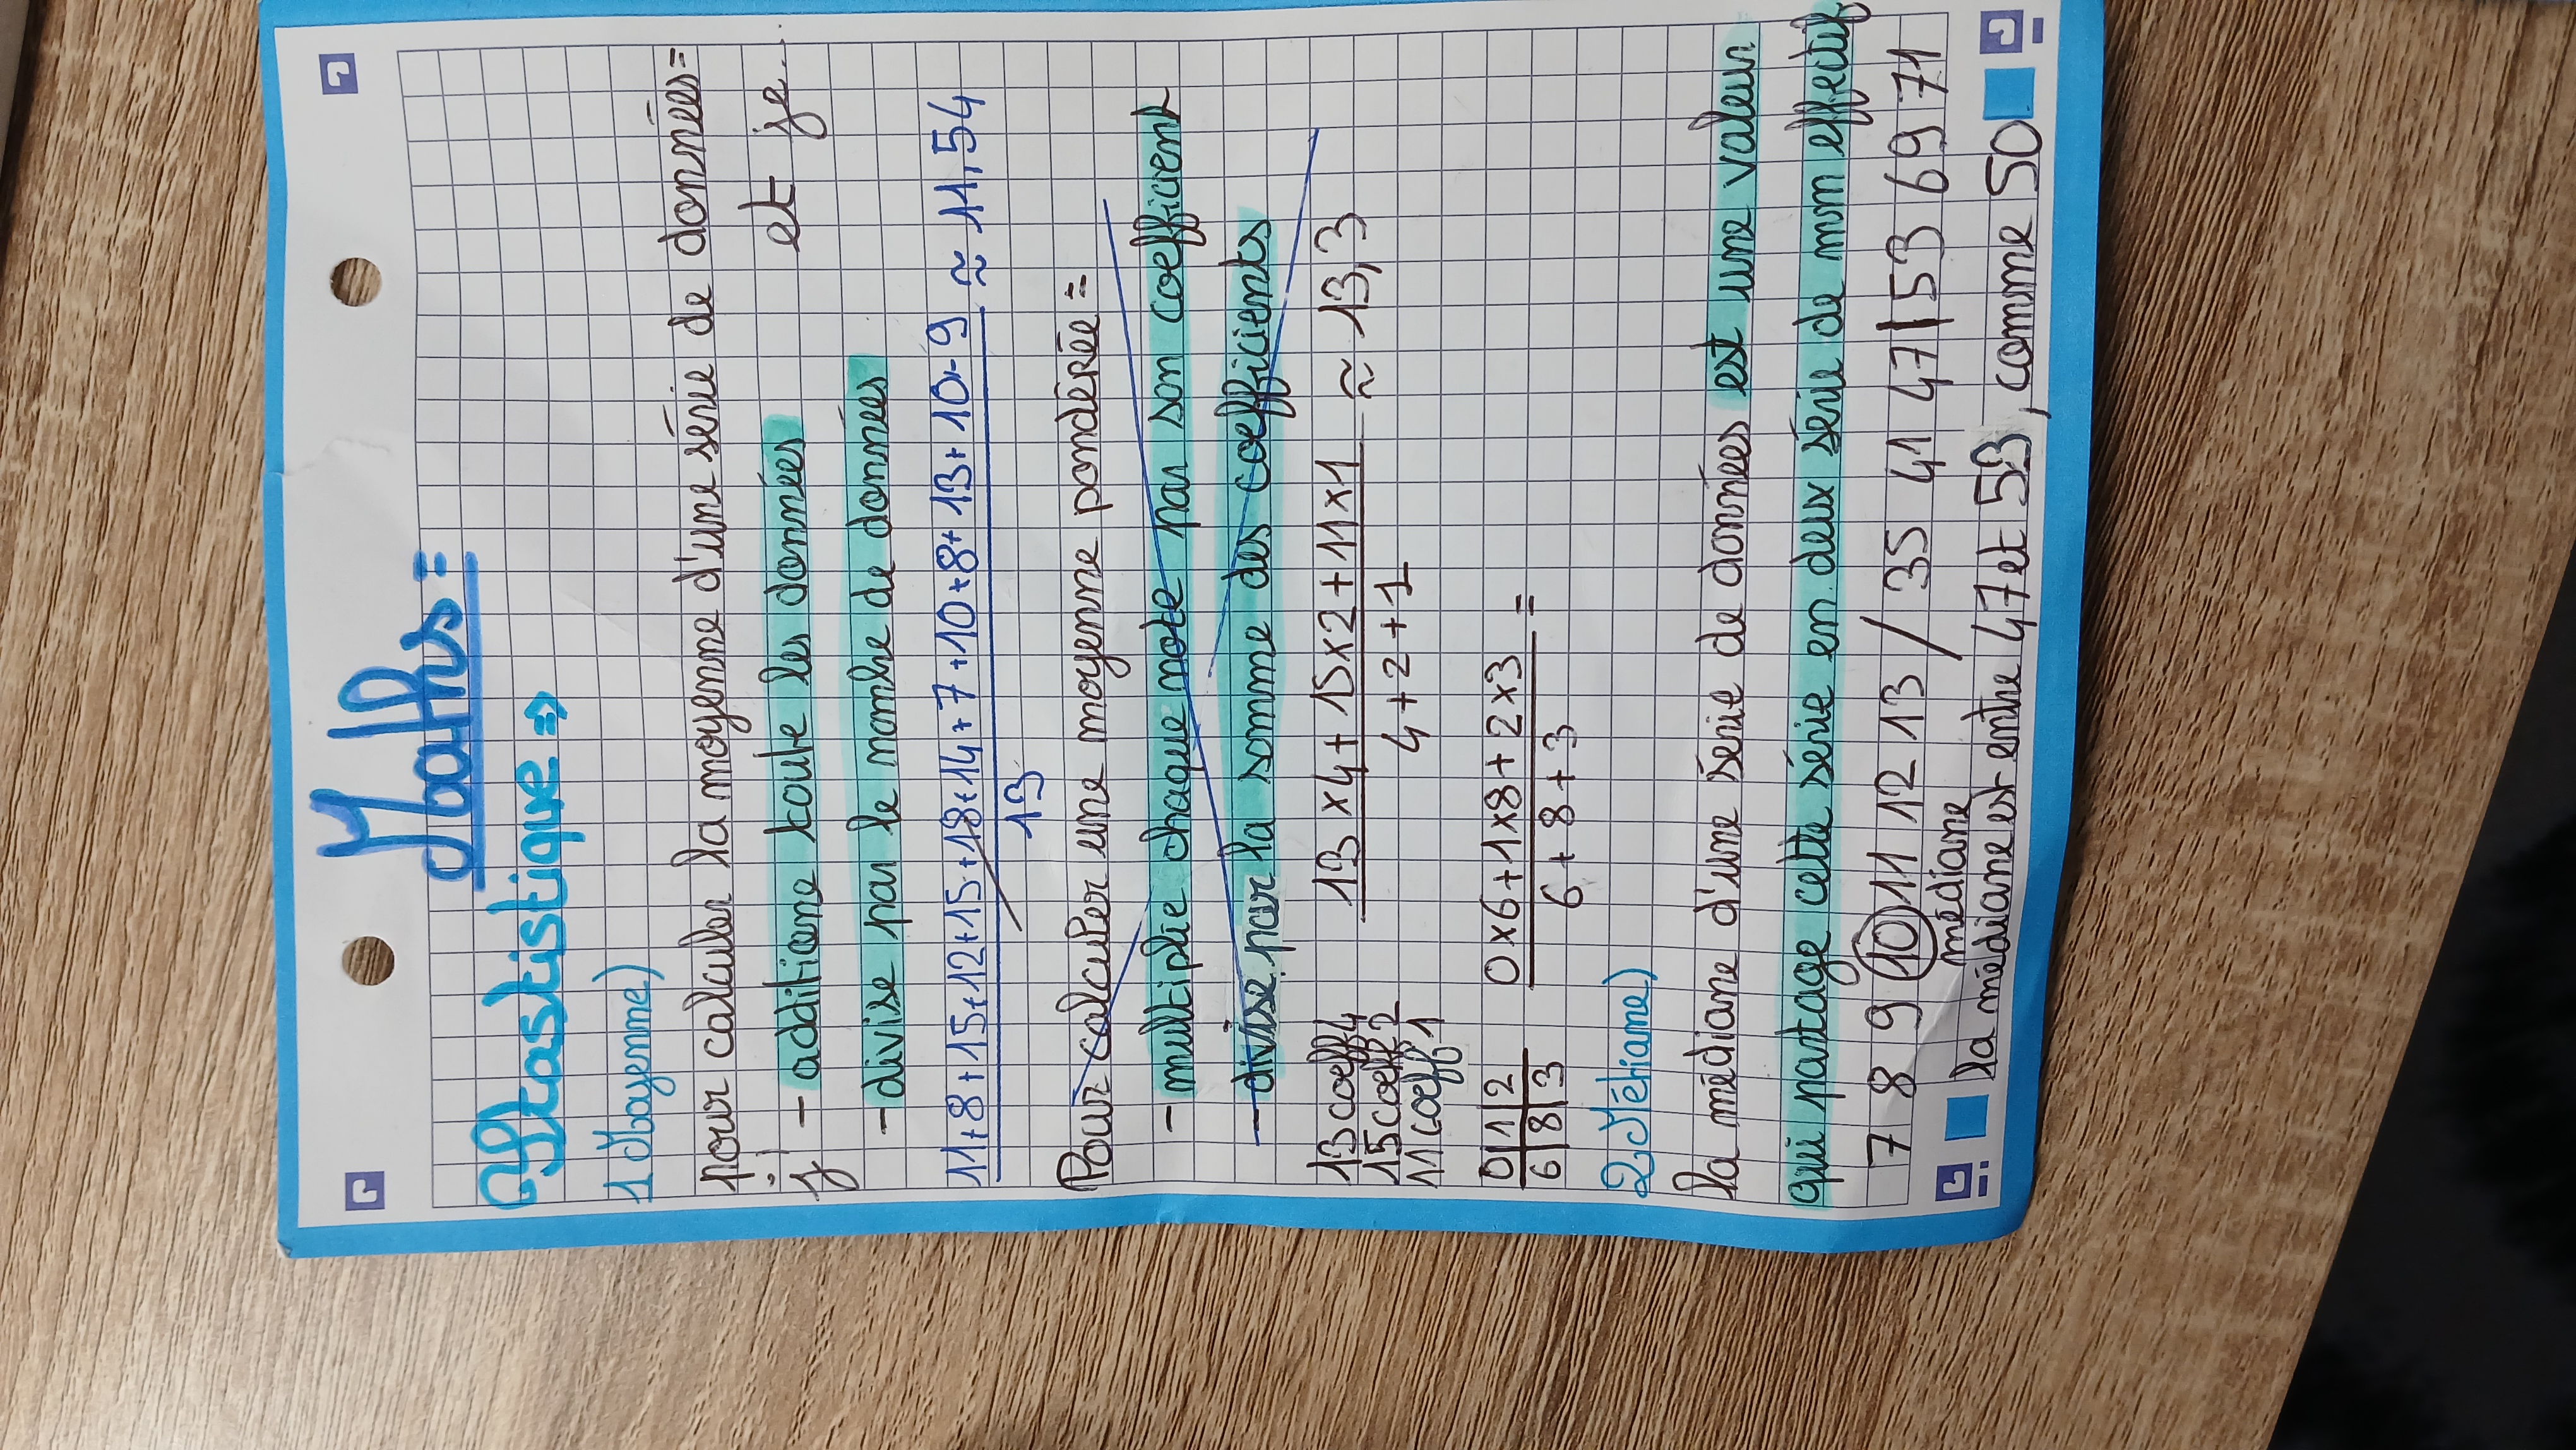 Maths =
Stastistique =>
1 Moyenne)
pour calculer la moyenne d'une série de données =
j' - additione toute les données et je...
- divise par le nombre de données
11+8+15+12+15+18+14+7+10+8+13+10+9 ≈ 11,54
13
Pour calculer une moyenne pondérée =
- multiplie chaque note par son coefficient
- divise par la somme des coefficients
13 coeff 4 13 x 4 + 15 x 2 + 11 x 1 ≈ 13,3
15 coeff 2 4 + 2 + 1
11 coeff 1
0 | 1 | 2 0 x 6 + 1 x 8 + 2 x 3 =
6 | 8 | 3 6 + 8 + 3
2 Médiane)
la médiane d'une série de données est une valeur
qui partage cette série en deux série de mon effectif
7 8 9 10 11 12 13 / 35 41 47 | 53 69 71
médiane
la médiane est entre 47 et 53, comme 50